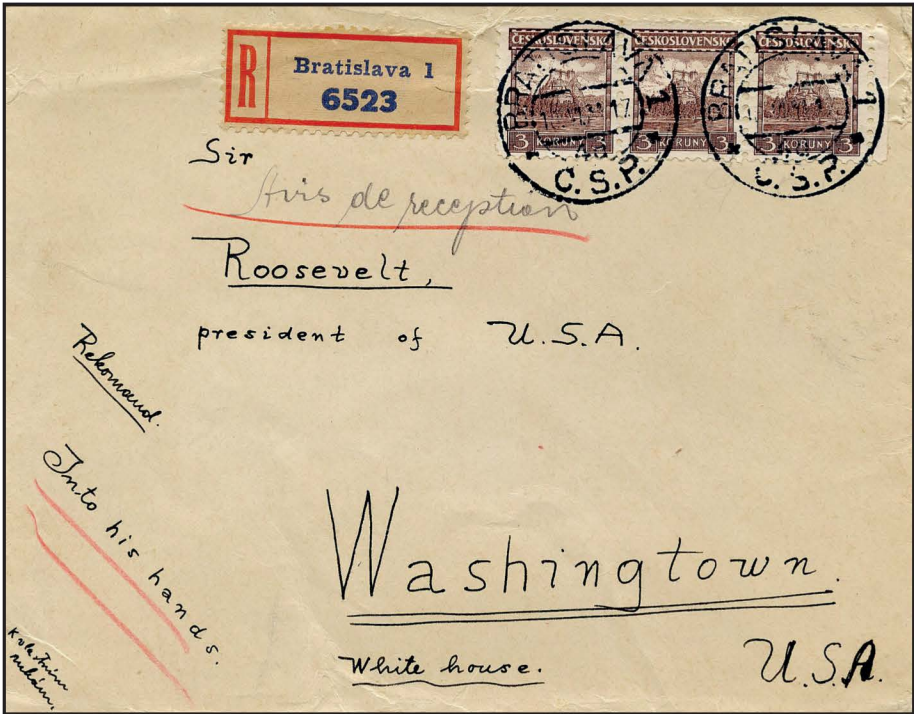 R
Bratislava 1
6523
ČESKOSLOVENSKO ČESKOSLOVENSKO ČESKOSLOVENSKO
3 KORUNY 3 3 KORUNY 3 3 KORUNY 3
BRATISLAVA 1
C.S.P.
BRATISLAVA 1
C.S.P.
Sir
Avis de reception
Roosevelt,
president of U.S.A.
Rekomand.
Into his hands.
K vlastním
rukám.
Washingtown.
White house.
U.S.A.